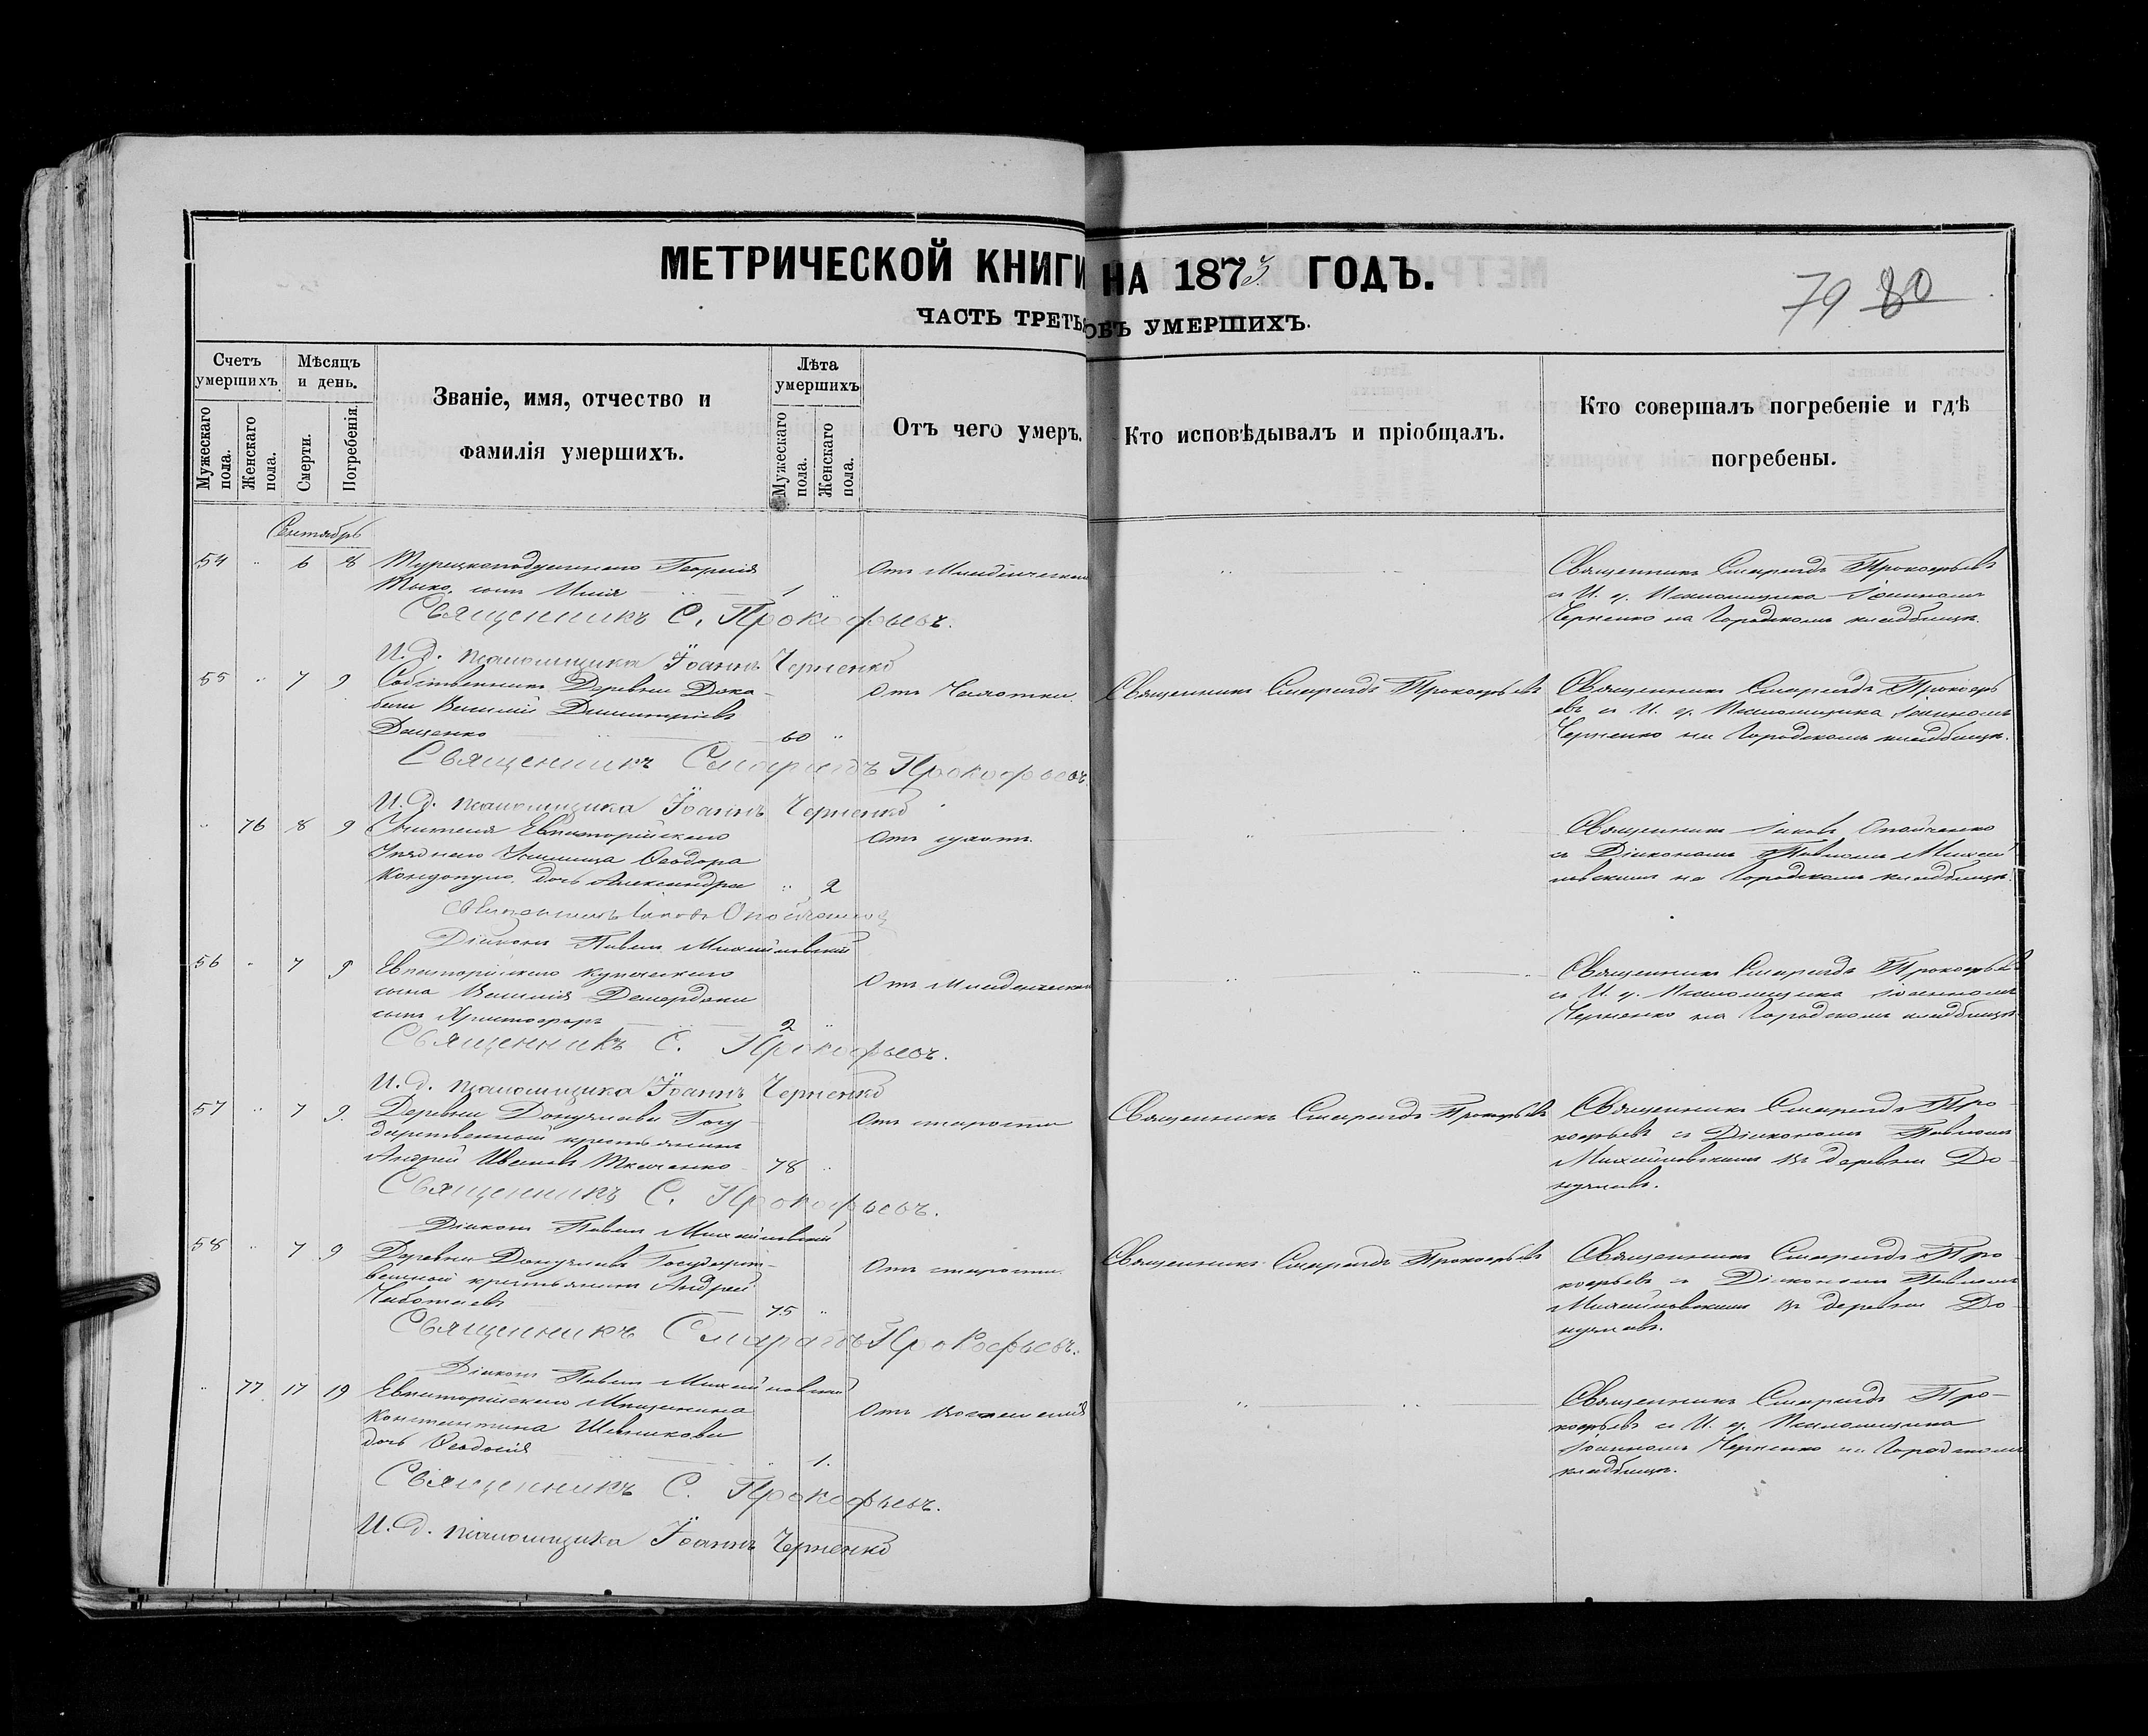 МЕТРИЧЕСКОЙ КНИГИ НА 1873 ГОДЪ.
79 80
ЧАСТЬ ТРЕТЬ ОБЪ УМЕРШИХЪ.
Счетъ умершихъ.
Мужескаго пола.
Женскаго пола.
Мѣсяцъ и день.
Смерти.
Погребенія.
Званіе, имя, отчество и
фамилія умершихъ.
Лѣта умершихъ
Мужескаго пола.
Женскаго пола.
Отъ чего умеръ.
Кто исповѣдывалъ и пріобщалъ.
Кто совершалъ погребеніе и гдѣ
погребены.
Сентябрь
54 " 6 8 Турецкоподданнаго Георгія
сынъ Илія 1
Отъ Младенческой
Священникъ Смарагдъ Прокофьевъ
и И. д. Псаломщика Іоанномъ
Черненко на Городскомъ кладбищѣ.
Священникъ С. Прокофьевъ.
И. д. псаломщика Іоаннъ Черненко
55 " 7 9 Собственникъ Деревни
Василій Димитріевъ
Даценко 60 "
Отъ Чахотки.
Священникъ Смарагдъ Прокофьевъ
Священникъ Смарагдъ Прокофь
евъ и И. д. Псаломщика Іоанномъ
Черненко на Городскомъ кладбищѣ.
Священникъ Смарагдъ Прокофьевъ
И. д. псаломщика Іоаннъ Черненко
" 76 8 9 Учителя Евпаторійскаго
Уѣзднаго Училища Ѳеодора
дочь Александра " 2
Отъ
Священникъ Іаковъ
и Діакономъ Павломъ Михай
ловскимъ на Городскомъ кладбищѣ.
Священникъ Іаковъ
Діаконъ Павелъ Михайловскій
56 " 7 9 Евпаторійскаго купеческаго
сына Василія
сынъ Христофоръ 2 "
Отъ Младенческой
Священникъ Смарагдъ Прокофьевъ
и И. д. Псаломщика Іоанномъ
Черненко на Городскомъ кладбищѣ
Священникъ С. Прокофьевъ.
И. д. псаломщика Іоаннъ Черненко
57 " 7 9 Деревни Донузлавъ Госу
дарственный крестьянинъ
Андрей Ивановъ Ткаченко 78 "
Отъ старости
Священникъ Смарагдъ Прокофьевъ
Священникъ Смарагдъ Про
кофьевъ и Діакономъ Павломъ
Михайловскимъ въ деревни До
нузлавъ.
Священникъ С. Прокофьевъ.
Діаконъ Павелъ Михайловскій
58 " 7 9 Деревни Донузлавъ Государст
венный крестьянинъ Андрей
75 "
Отъ старости
Священникъ Смарагдъ Прокофьевъ
Священникъ Смарагдъ Про
кофьевъ и Діакономъ Павломъ
Михайловскимъ въ деревни До
нузлавъ.
Священникъ Смарагдъ Прокофьевъ.
Діаконъ Павелъ Михайловскій
" 77 17 19 Евпаторійскаго Мѣщанина
Константина
дочь Ѳеодосія " 1.
Отъ воспаленія
Священникъ Смарагдъ Про
кофьевъ и И. д. Псаломщика
Іоанномъ Черненко на Городскомъ
кладбищѣ.
Священникъ С. Прокофьевъ.
И. д. псаломщика Іоаннъ Черненко